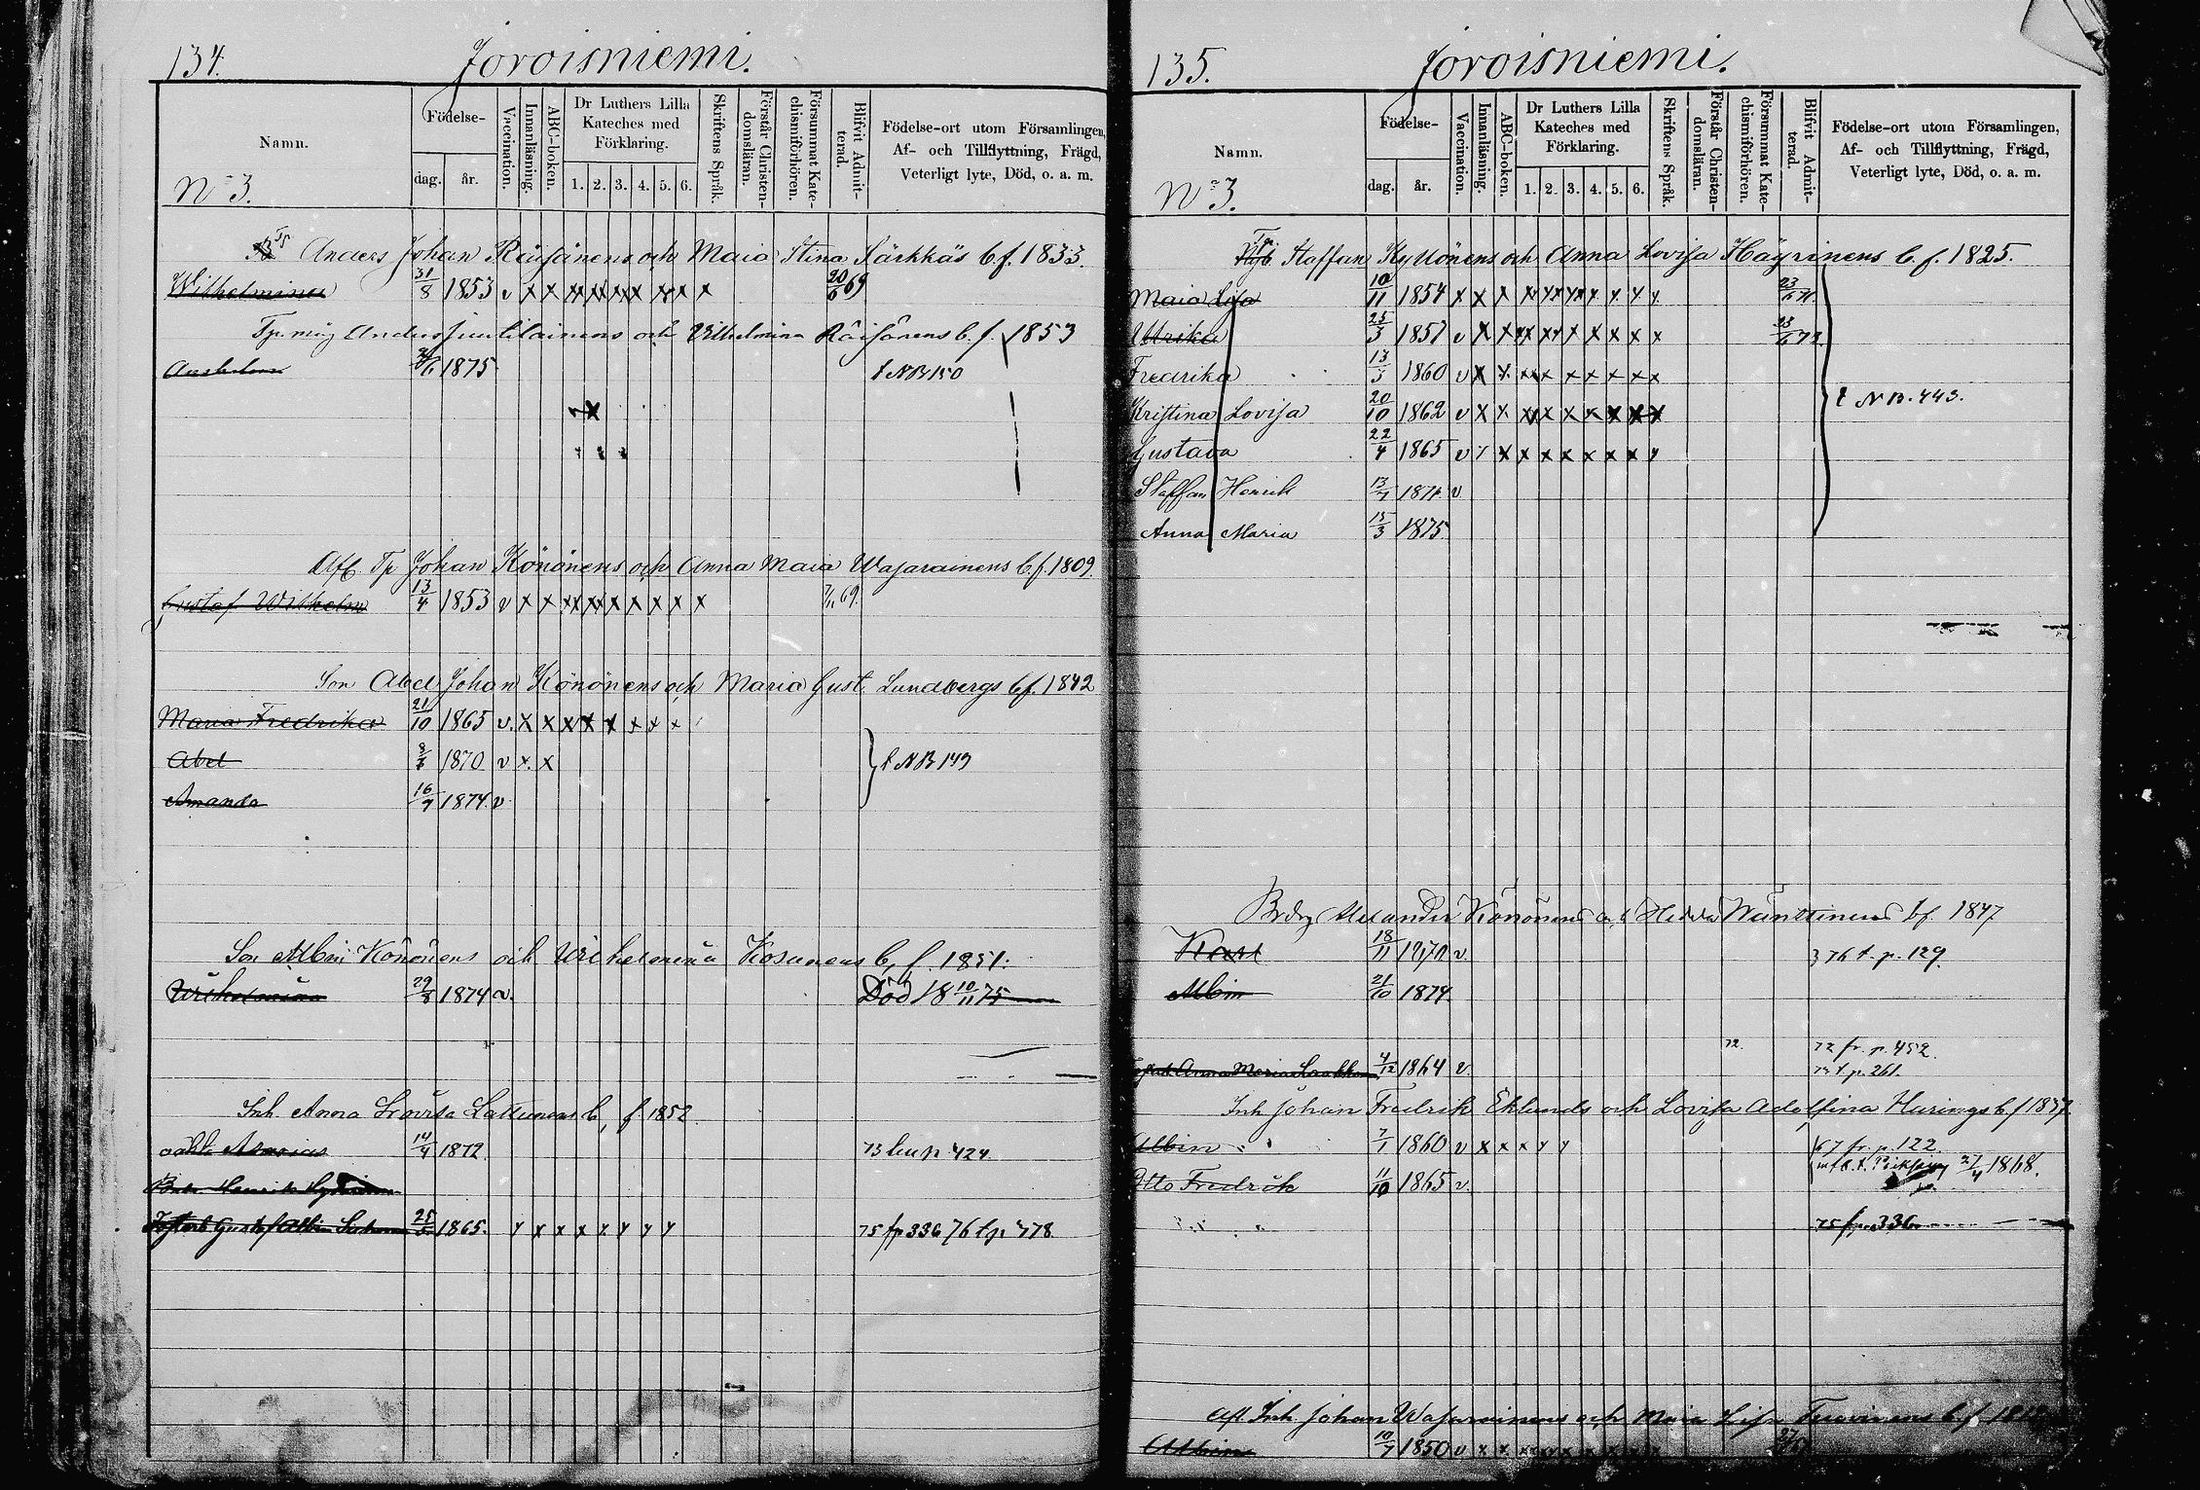 134.
Joroisniemi.
Namn.
Födelse-
dag.
år.
Vaccination.
Innanläsning.
ABC-boken.
Dr Luthers Lilla
Kateches med
Förklaring.
1. 2. 3. 4. 5. 6.
Skriftens Språk.
Förstår Christen-
domsläran.
Försummat Kate-
chismiförhören.
Blifvit Admit-
terad.
Födelse-ort utom Församlingen,
Af- och Tillflyttning, Frägd,
Veterligt lyte, Död, o. a. m.
N:o 3.
Tp Anders Johan Räisänens och Maia Stina Särkkäs b. f. 1833.
Wilhelmina 31/8 1853 v x x x x x x x x x 20/6 69
Tp. måg Anders Juntilainens och Vilhelmina Räisänens b. f. 1853
1875 t NB 150
Afl. Tp Johan Könönens och Anna Maia Wajarainens b f. 1809.
Gustaf Wilhelm 13/4 1853 v x x x x x x x x x 69.
Son Abel Johan Könönens och Maria Gust. Lundbergs bf. 1842
Maria Fredrika 21/10 1865 v. x x x x x x x x
Abel 1870 v x x
t NB 149
Amanda 16/7 1874 v
Son Albin Könönens och Vilhelmina Kosunens b. f. 1851.
Vilhelmina 29/8 1874 v. Död 18 10/11 75
Inh. Anna Lovisa b. f 1852
14/4 1872 73 424
Henrik
Gustaf Albin 25/5 1865. x x x x x x x x 75 fp 336 76 tp. 778
135.
Joroisniemi.
Namn.
Födelse-
dag.
år.
Vaccination.
Innanläsning.
ABC-boken.
Dr Luthers Lilla
Kateches med
Förklaring.
1. 2. 3. 4. 5. 6.
Skriftens Språk.
Förstår Christen-
domsläran.
Försummat Kate-
chismiförhören.
Blifvit Admit-
terad.
Födelse-ort utom Församlingen,
Af- och Tillflyttning, Frägd,
Veterligt lyte, Död, o. a. m.
N:o 3.
Tp. Staffan Kyllönens och Anna Lovisa Häyrinens b. f. 1825.
Maia Lisa 10/11 1854 x x x x x x x x x x
Ulrika 25/3 1857 v x x x x x x x x x
Fredrika 13/3 1860 v x x x x x x x x x
Kristina Lovisa 20/10 1862 v x x x x x x x x x
t NB. 443.
Gustava 22/4 1865 v x x x x x x x x x
Staffan Henrik 13/7 1871. v
Anna Maria 15/3 1875
Alexander Könönens och Hedda b f. 1847
Karl 18/11 1870 v. 76 t. p. 129.
Albin 21/10 1874
72. 72 fr. p. 452.
Anna Maria 4/12 1864 v. t. p. 261.
Inh Johan Fredrik Eklunds och Lovisa Adolfina Hurings b f 1837.
Albin 7/1 1860 v x x x x x 67 fr. p. 122.
1868.
Otto Fredrik 11/10 1865 v.
75 fp. 336
Afl. Inh Johan Wajarainens och Maia Lisa Tuovinens b. f.
Albin 10/7 1850 v x x x x x x x x x